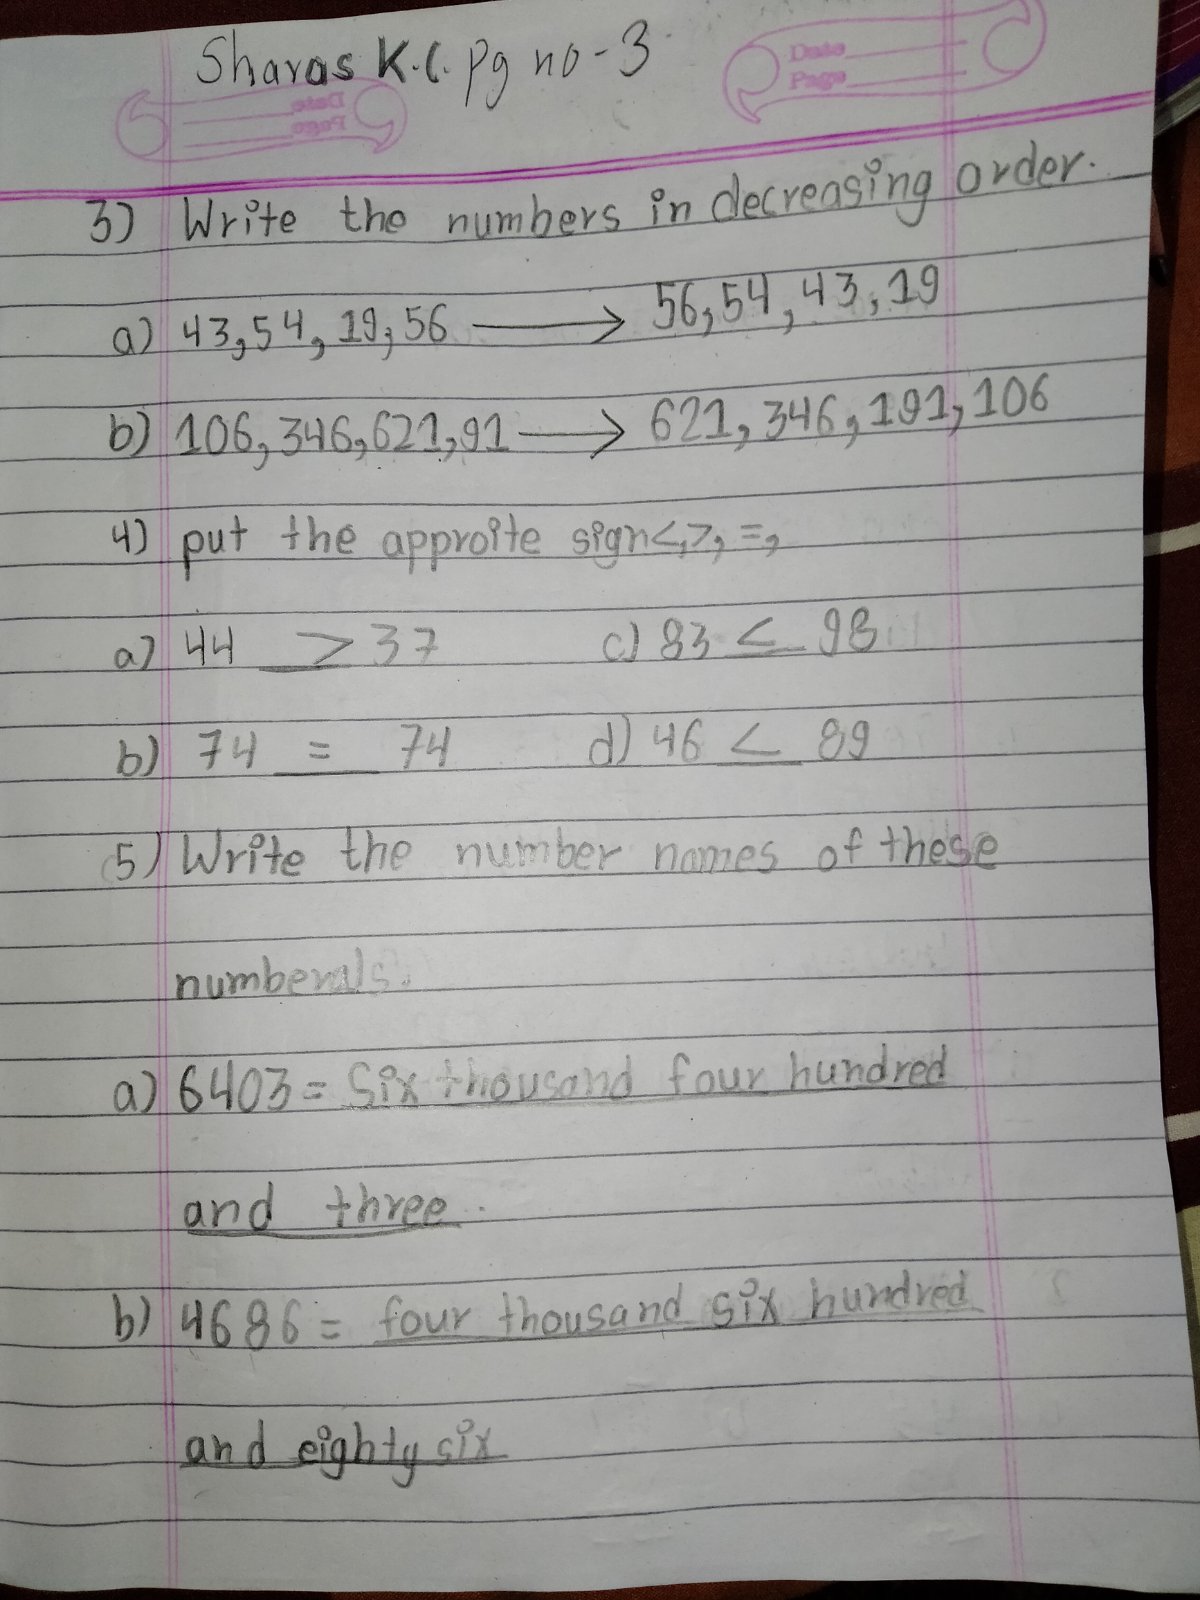 Sharas K.C. Pg no - 3
Date
Page
Date
Page
3) Write the numbers in decreasing order.
a) 43, 54, 19, 56 → 56, 54, 43, 19
b) 106, 346, 621, 91 → 621, 346, 191, 106
4) put the approite sign <, >, =,
a) 44 > 37 c) 83 < 98
b) 74 = 74 d) 46 < 89
5) Write the number names of these
numberals.
a) 6403 = Six thousand four hundred
and three.
b) 4686 = four thousand six hundred
and eighty six